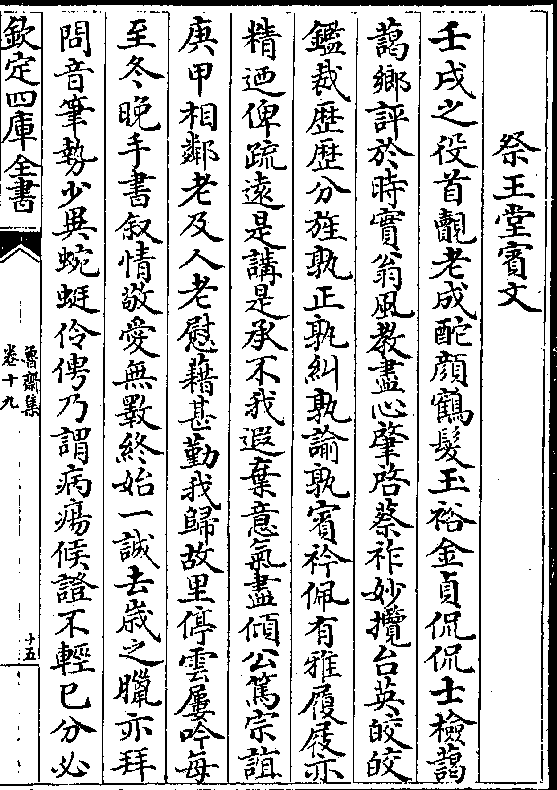 祭王堂賔文
壬戌之役首覿老成酡顔鶴髮玉裕金貞侃侃士檢藹
藹鄉評於時實翁風教盡心肇啓蔡祚妙攬台英皎皎
鑑裁歴歴分旌孰正孰糾孰諭孰賔衿佩有雅履屐亦
精迺俾疏遠是講是承不我遐棄意氣盡傾公篤宗誼
庚甲相鄰老及人老慰藉甚勤我歸故里停雲屢吟每
至冬晚手書叙情敬愛無斁終始一誠去歳之臘亦拜
問音筆勢少異蜿蜓伶俜乃謂病瘍候證不輕已分必
欽定四庫全書
魯齋集
卷十九
十五